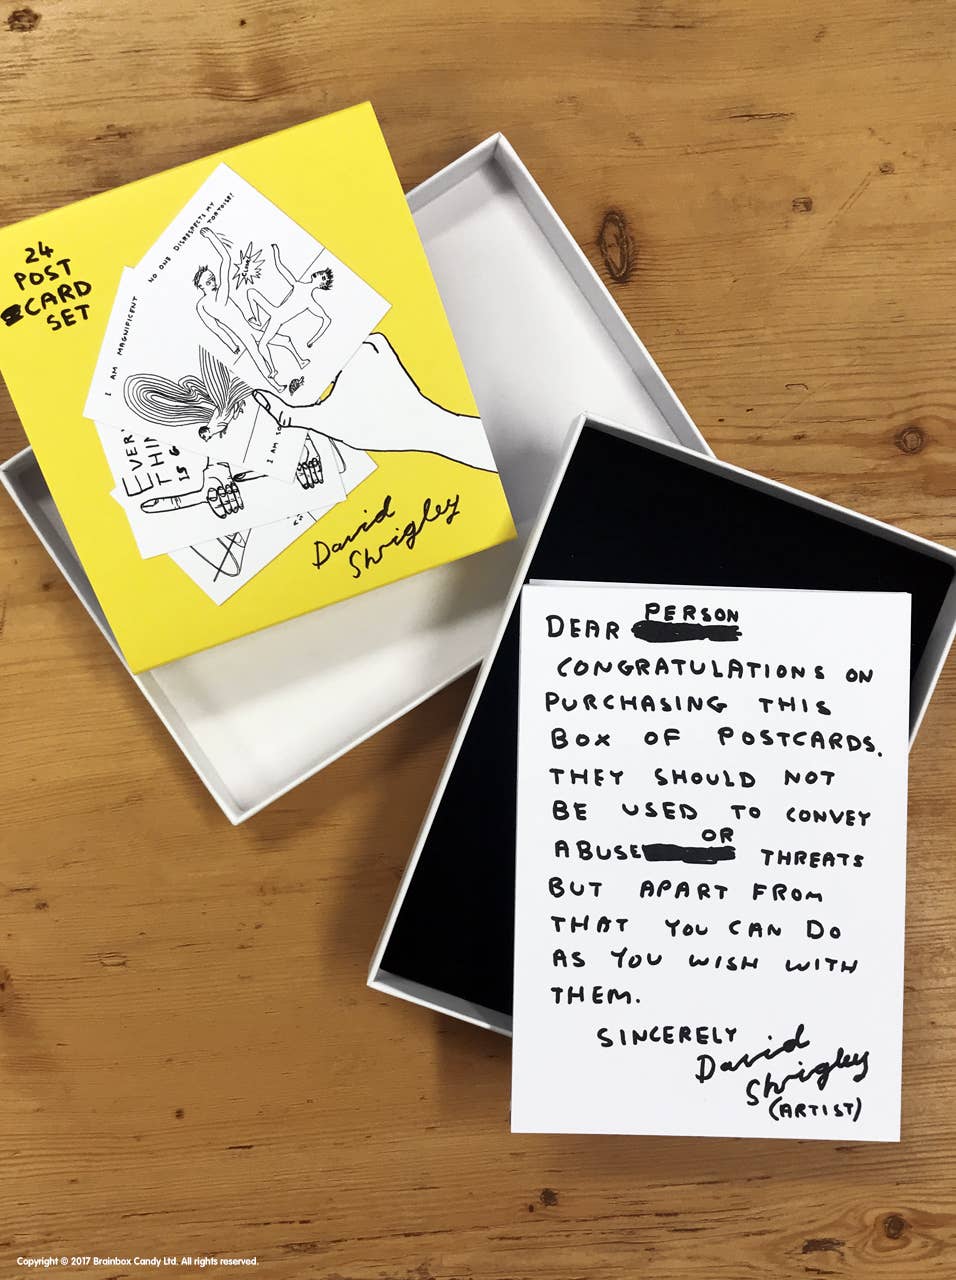 24
POST
CARD
SET
NO ONE DISRESPECTS MY
TORTOISE!
I AM MAGNIFICENT
EVERY
THIN
IS G
I AM SO
David
Shrigley
DEAR PERSON
CONGRATULATIONS ON
PURCHASING THIS
BOX OF POSTCARDS.
THEY SHOULD NOT
BE USED TO CONVEY
ABUSE OR THREATS
BUT APART FROM
THAT YOU CAN DO
AS YOU WISH WITH
THEM.
SINCERELY
David
Shrigley
(ARTIST)
Copyright © 2017 Brainbox Candy Ltd. All rights reserved.